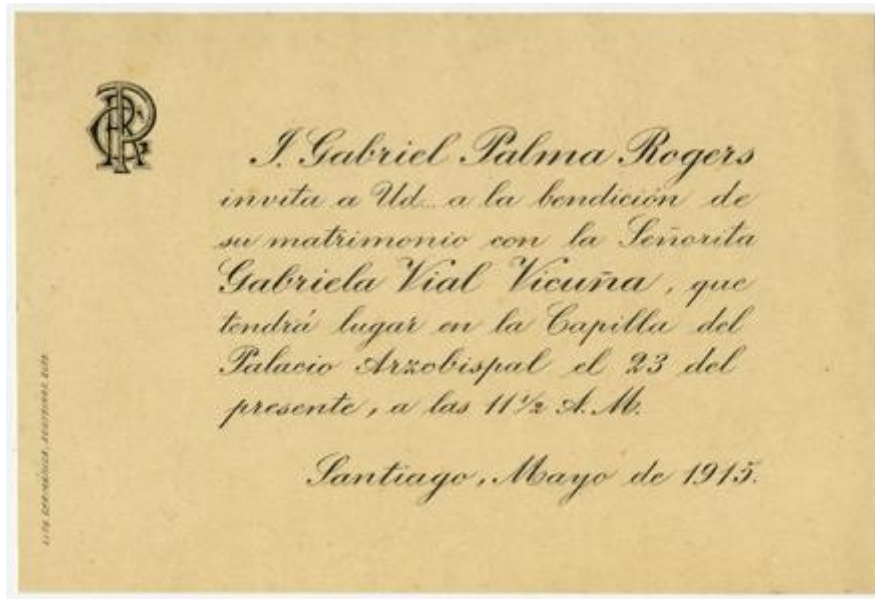 J. Gabriel Palma Rogers
invita a Ud. a la bendición de
su matrimonio con la Señorita
Gabriela Vial Vicuña, que
tendrá lugar en la Capilla del
Palacio Arzobispal el 23 del
presente, a las 11½ A.M.
Santiago, Mayo de 1915.